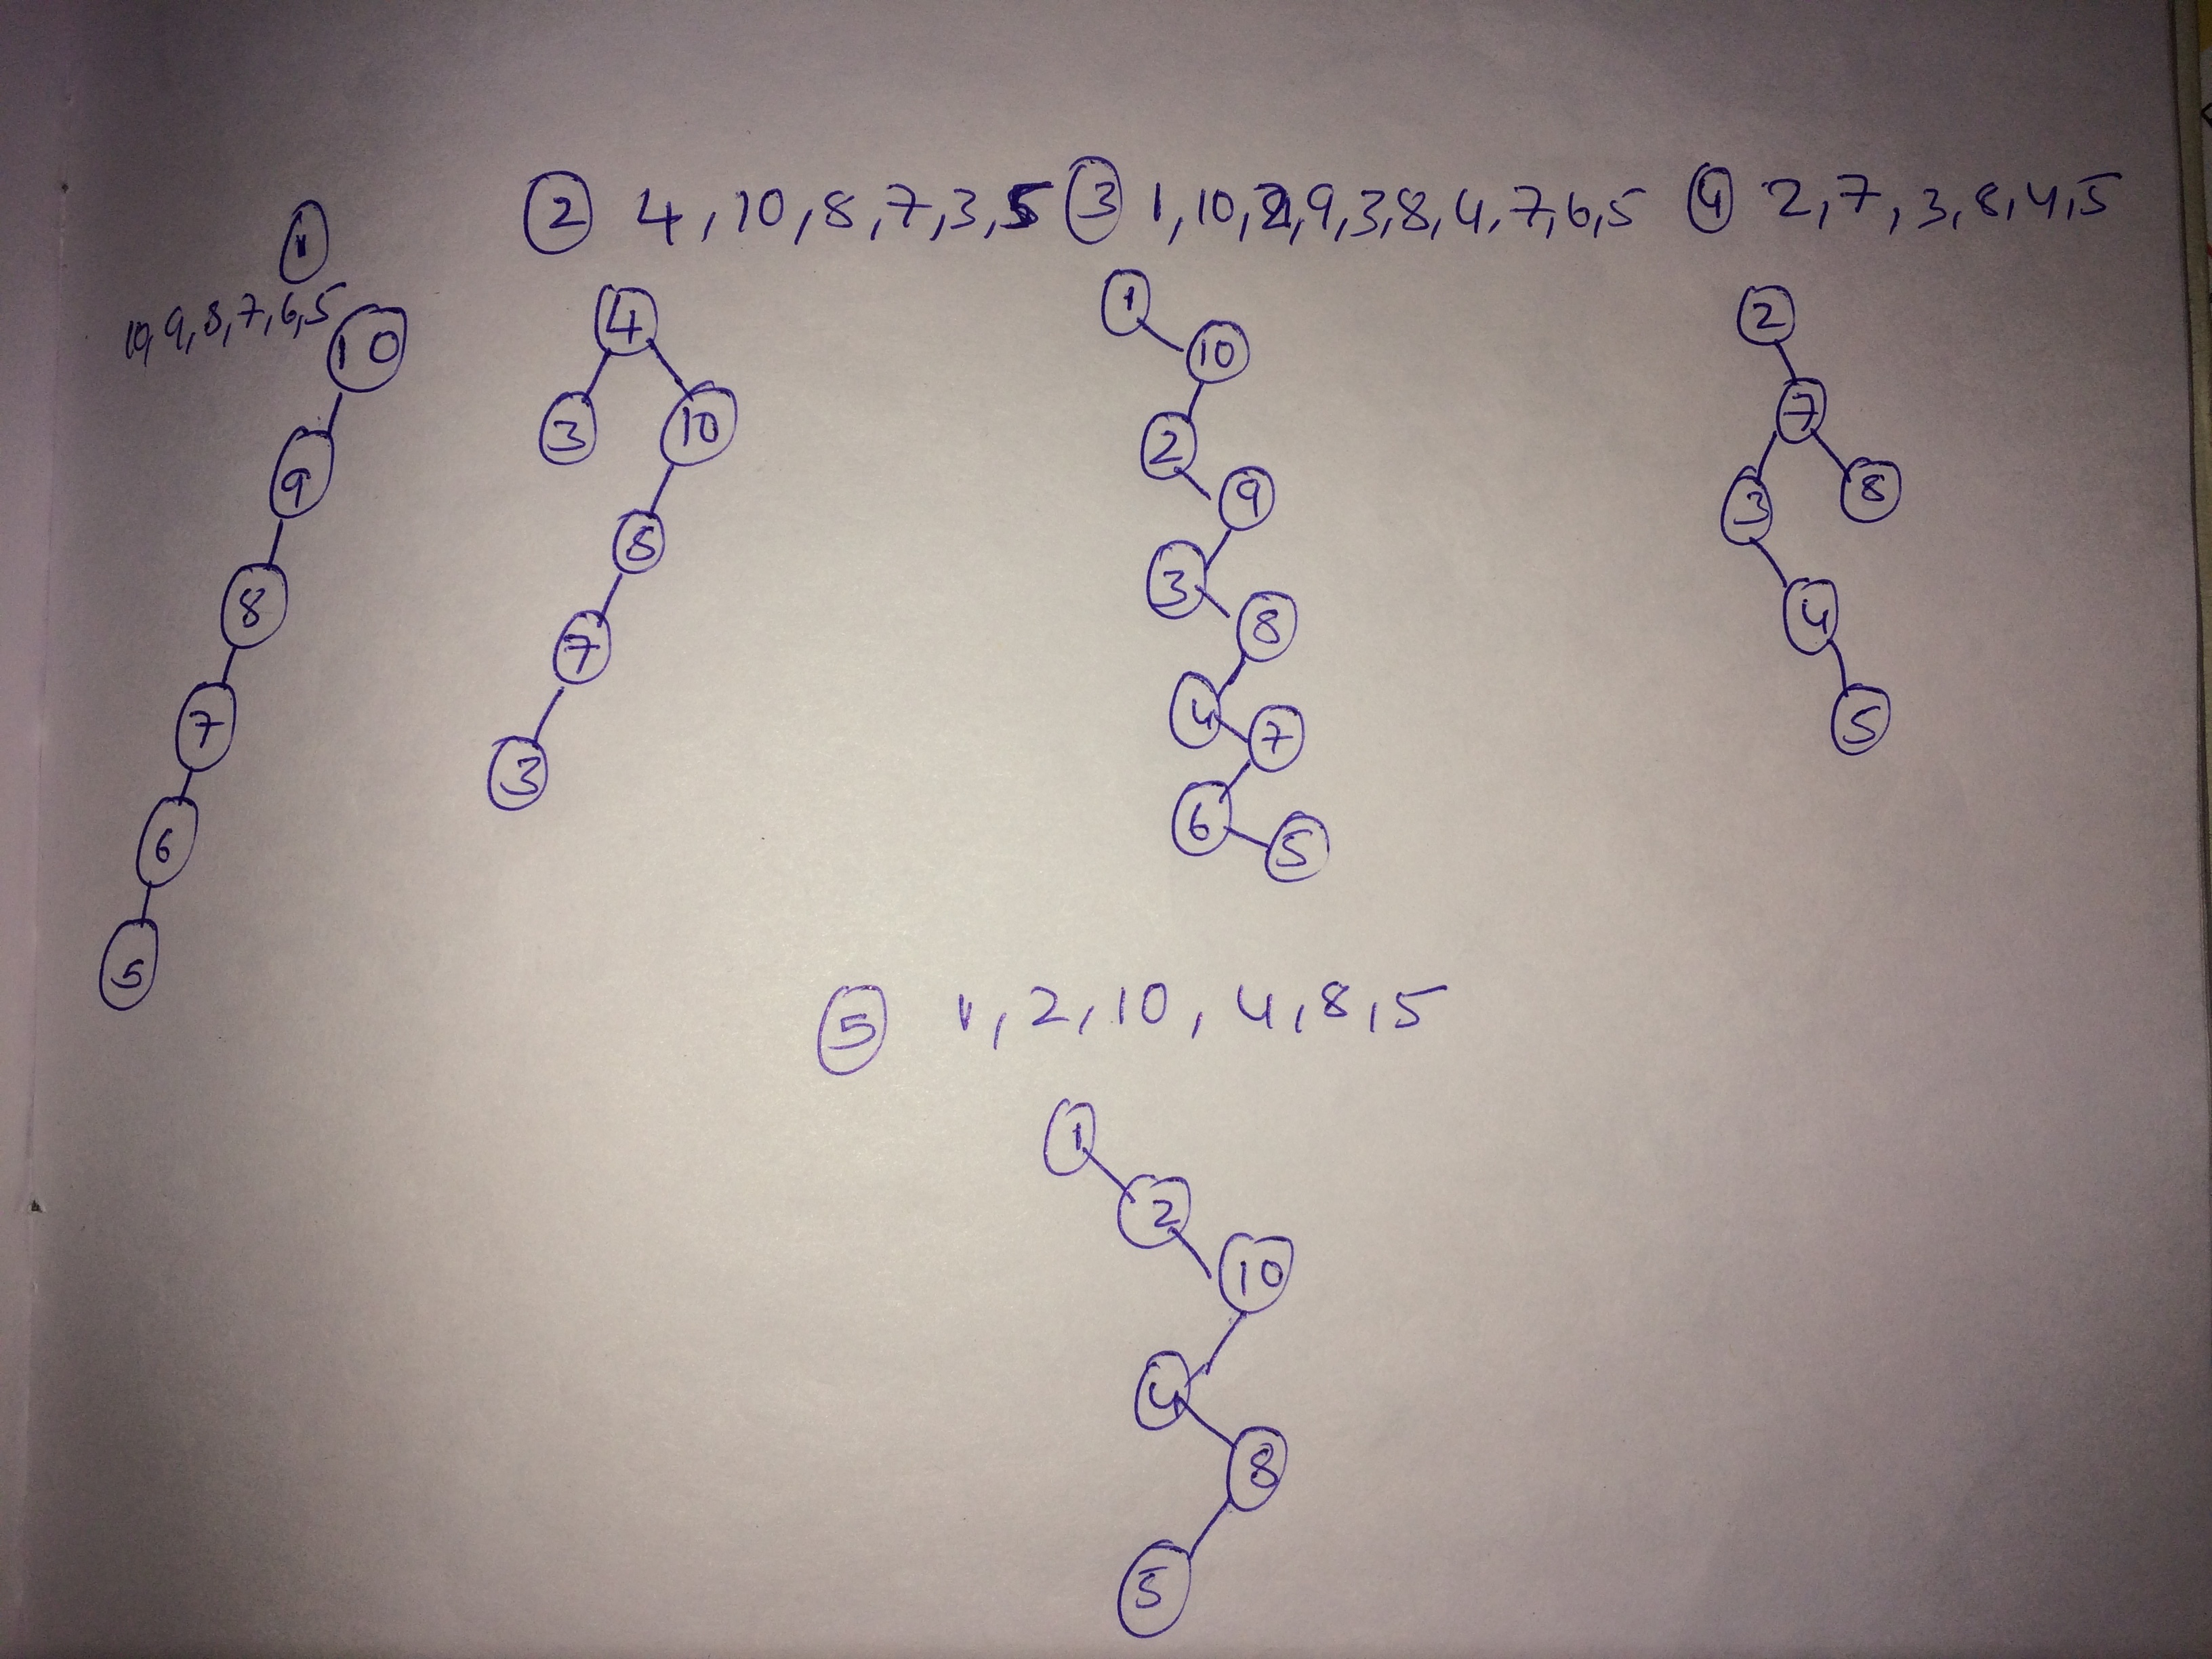 ① 
10, 9, 8, 7, 6, 5
10
9
8
7
6
5
② 4, 10, 8, 7, 3, 5
4
3 10
8
7
3
③ 1, 10, 2, 9, 3, 8, 4, 7, 6, 5
1
10
2
9
3
8
4
7
6
5
④ 2, 7, 3, 8, 4, 5
2
7
3 8
4
5
⑤ 1, 2, 10, 4, 8, 5
1
2
10
4
8
5